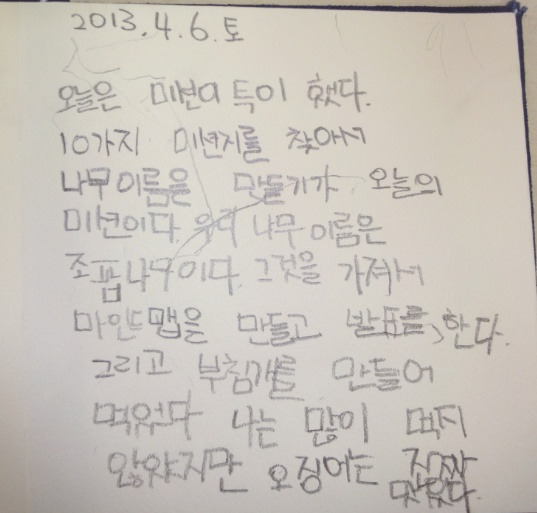 2013.4.6.토
오늘은 미션이 특이 했다.
10가지 미션지를 찾아서
나무이름을 만들기가 오늘의
미션이다. 우리 나무 이름은
조팝나무이다. 그것을 가져서
마인드맵을 만들고 발표를 한다.
그리고 부침개를 만들어
먹었다 나는 많이 먹지
않았지만 오징어는 진짜
맛있다.